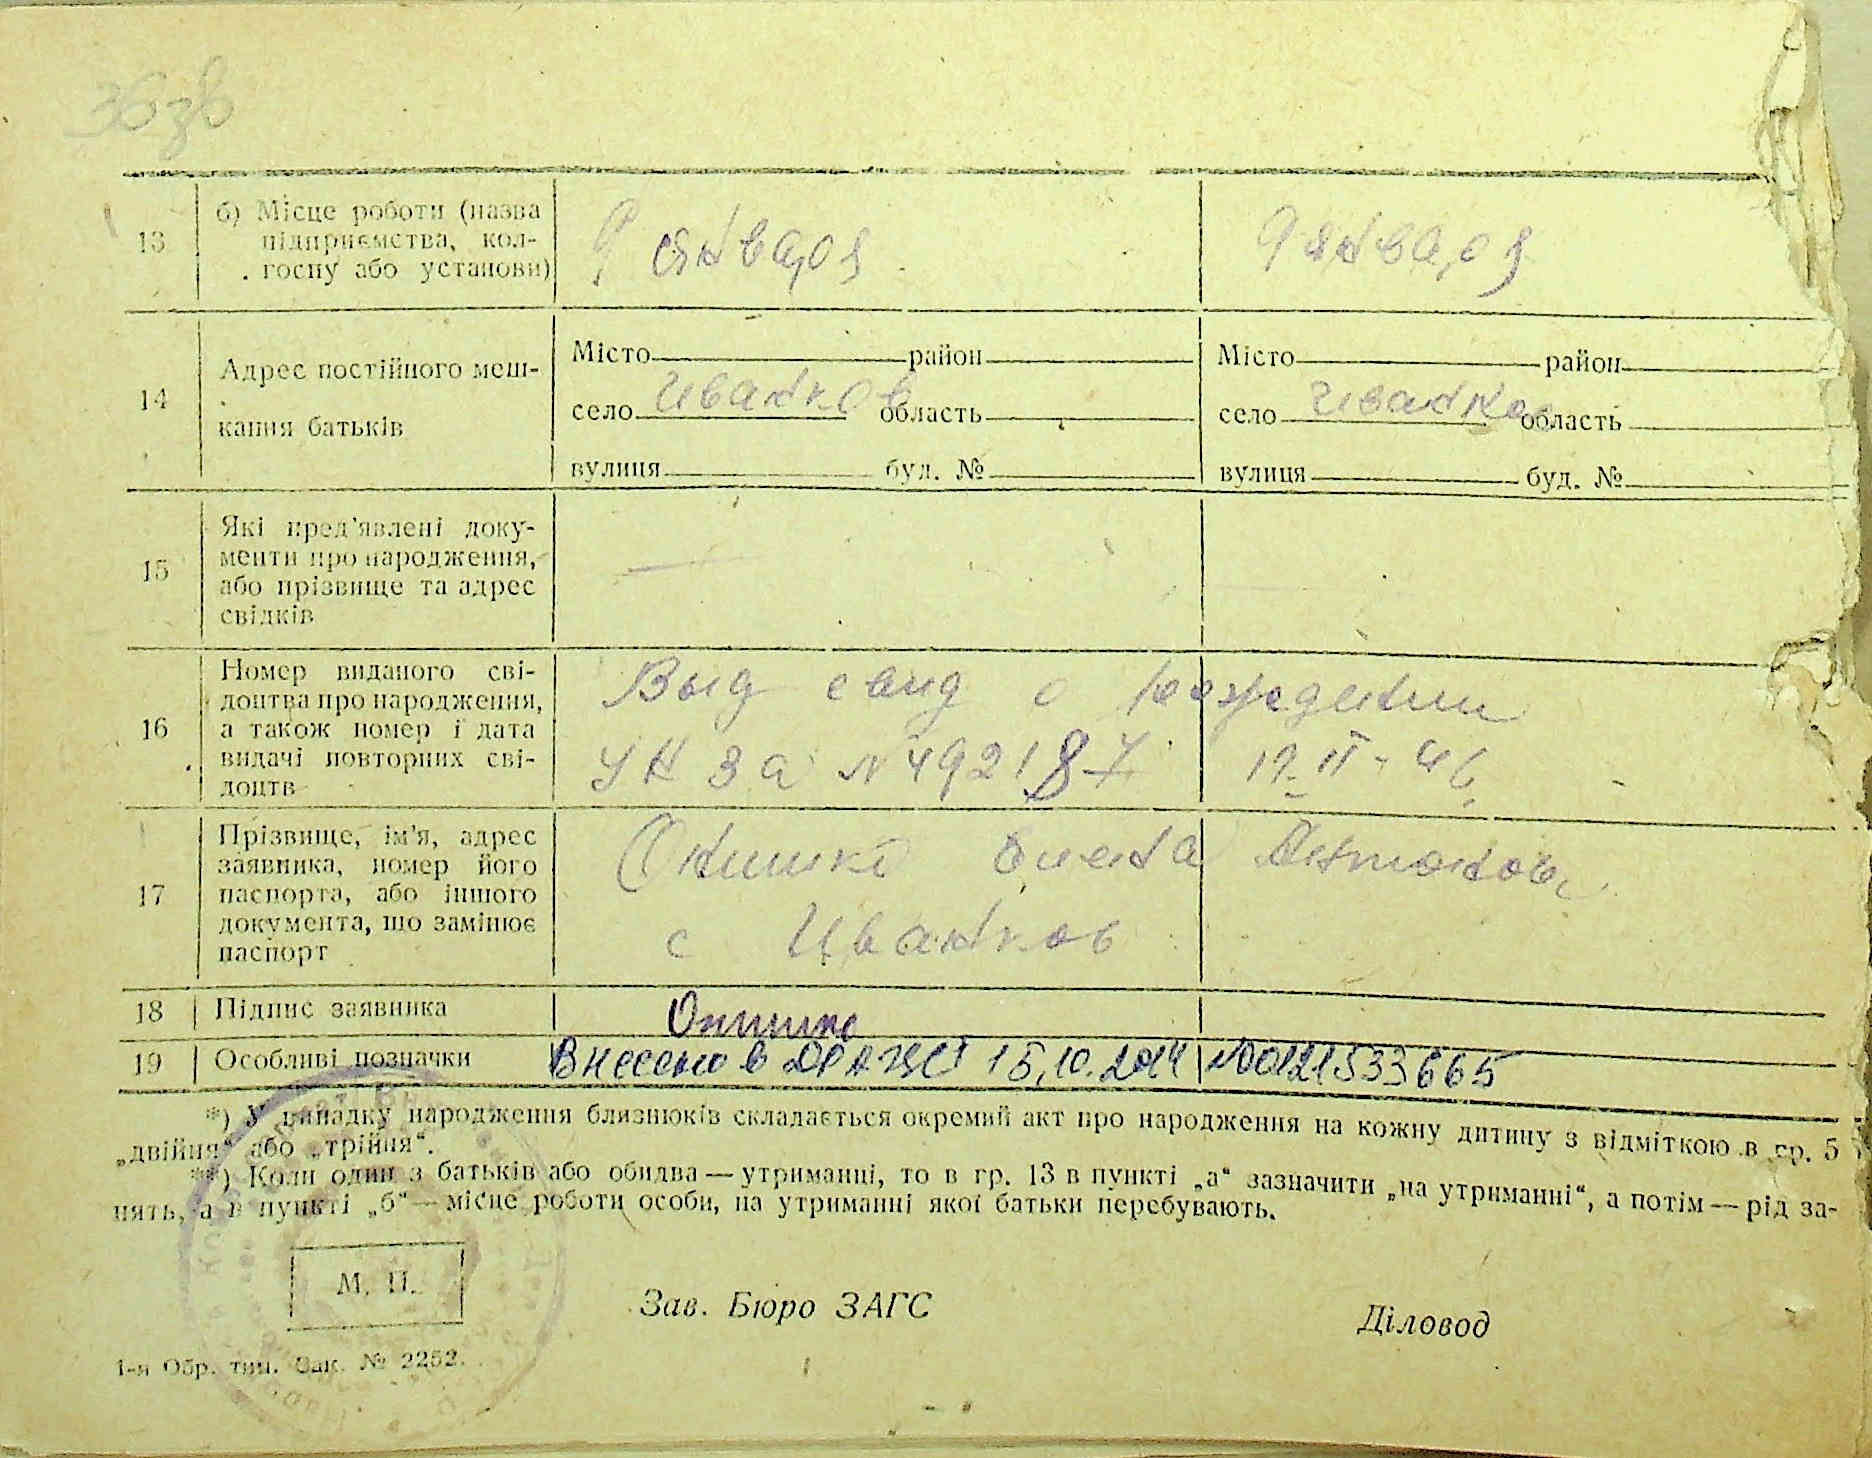 36зв
13
б) Місце роботи (назва
підприємства, кол-
госпу або установи)
9 января
9 января
14
Адрес постійного меш-
кання батьків
Місто район
село Иванков область
вулиця буд. №
Місто район
село Иванков область
вулиця буд. №
15
Які пред'явлені доку-
менти про народження,
або прізвище та адрес
свідків
—
16
Номер виданого сві-
доцтва про народження,
а також номер і дата
видачі повторних сві-
доцтв
Выд свид о рождении
УН за № 492187 12-II-46
17
Прізвище, ім'я, адрес
заявника, номер його
паспорта, або іншого
документа, що замінює
паспорт
Елена Антоновн
с Иванков
18
Підпис заявника
19
Особливі позначки
Внесено в ДРАЦС 15.10.2014 №00121533665
*) У випадку народження близнюків складається окремий акт про народження на кожну дитину з відміткою в гр. 5
„двійня“ або „трійня“.
**) Коли один з батьків або обидва — утриманці, то в гр. 13 в пункті „а“ зазначити „на утриманні“, а потім — рід за-
нять, а в пункті „б“ — місце роботи особи, на утриманні якої батьки перебувають.
М. П.
Зав. Бюро ЗАГС
Діловод
1-я Обр. тип. Зак. № 2252.